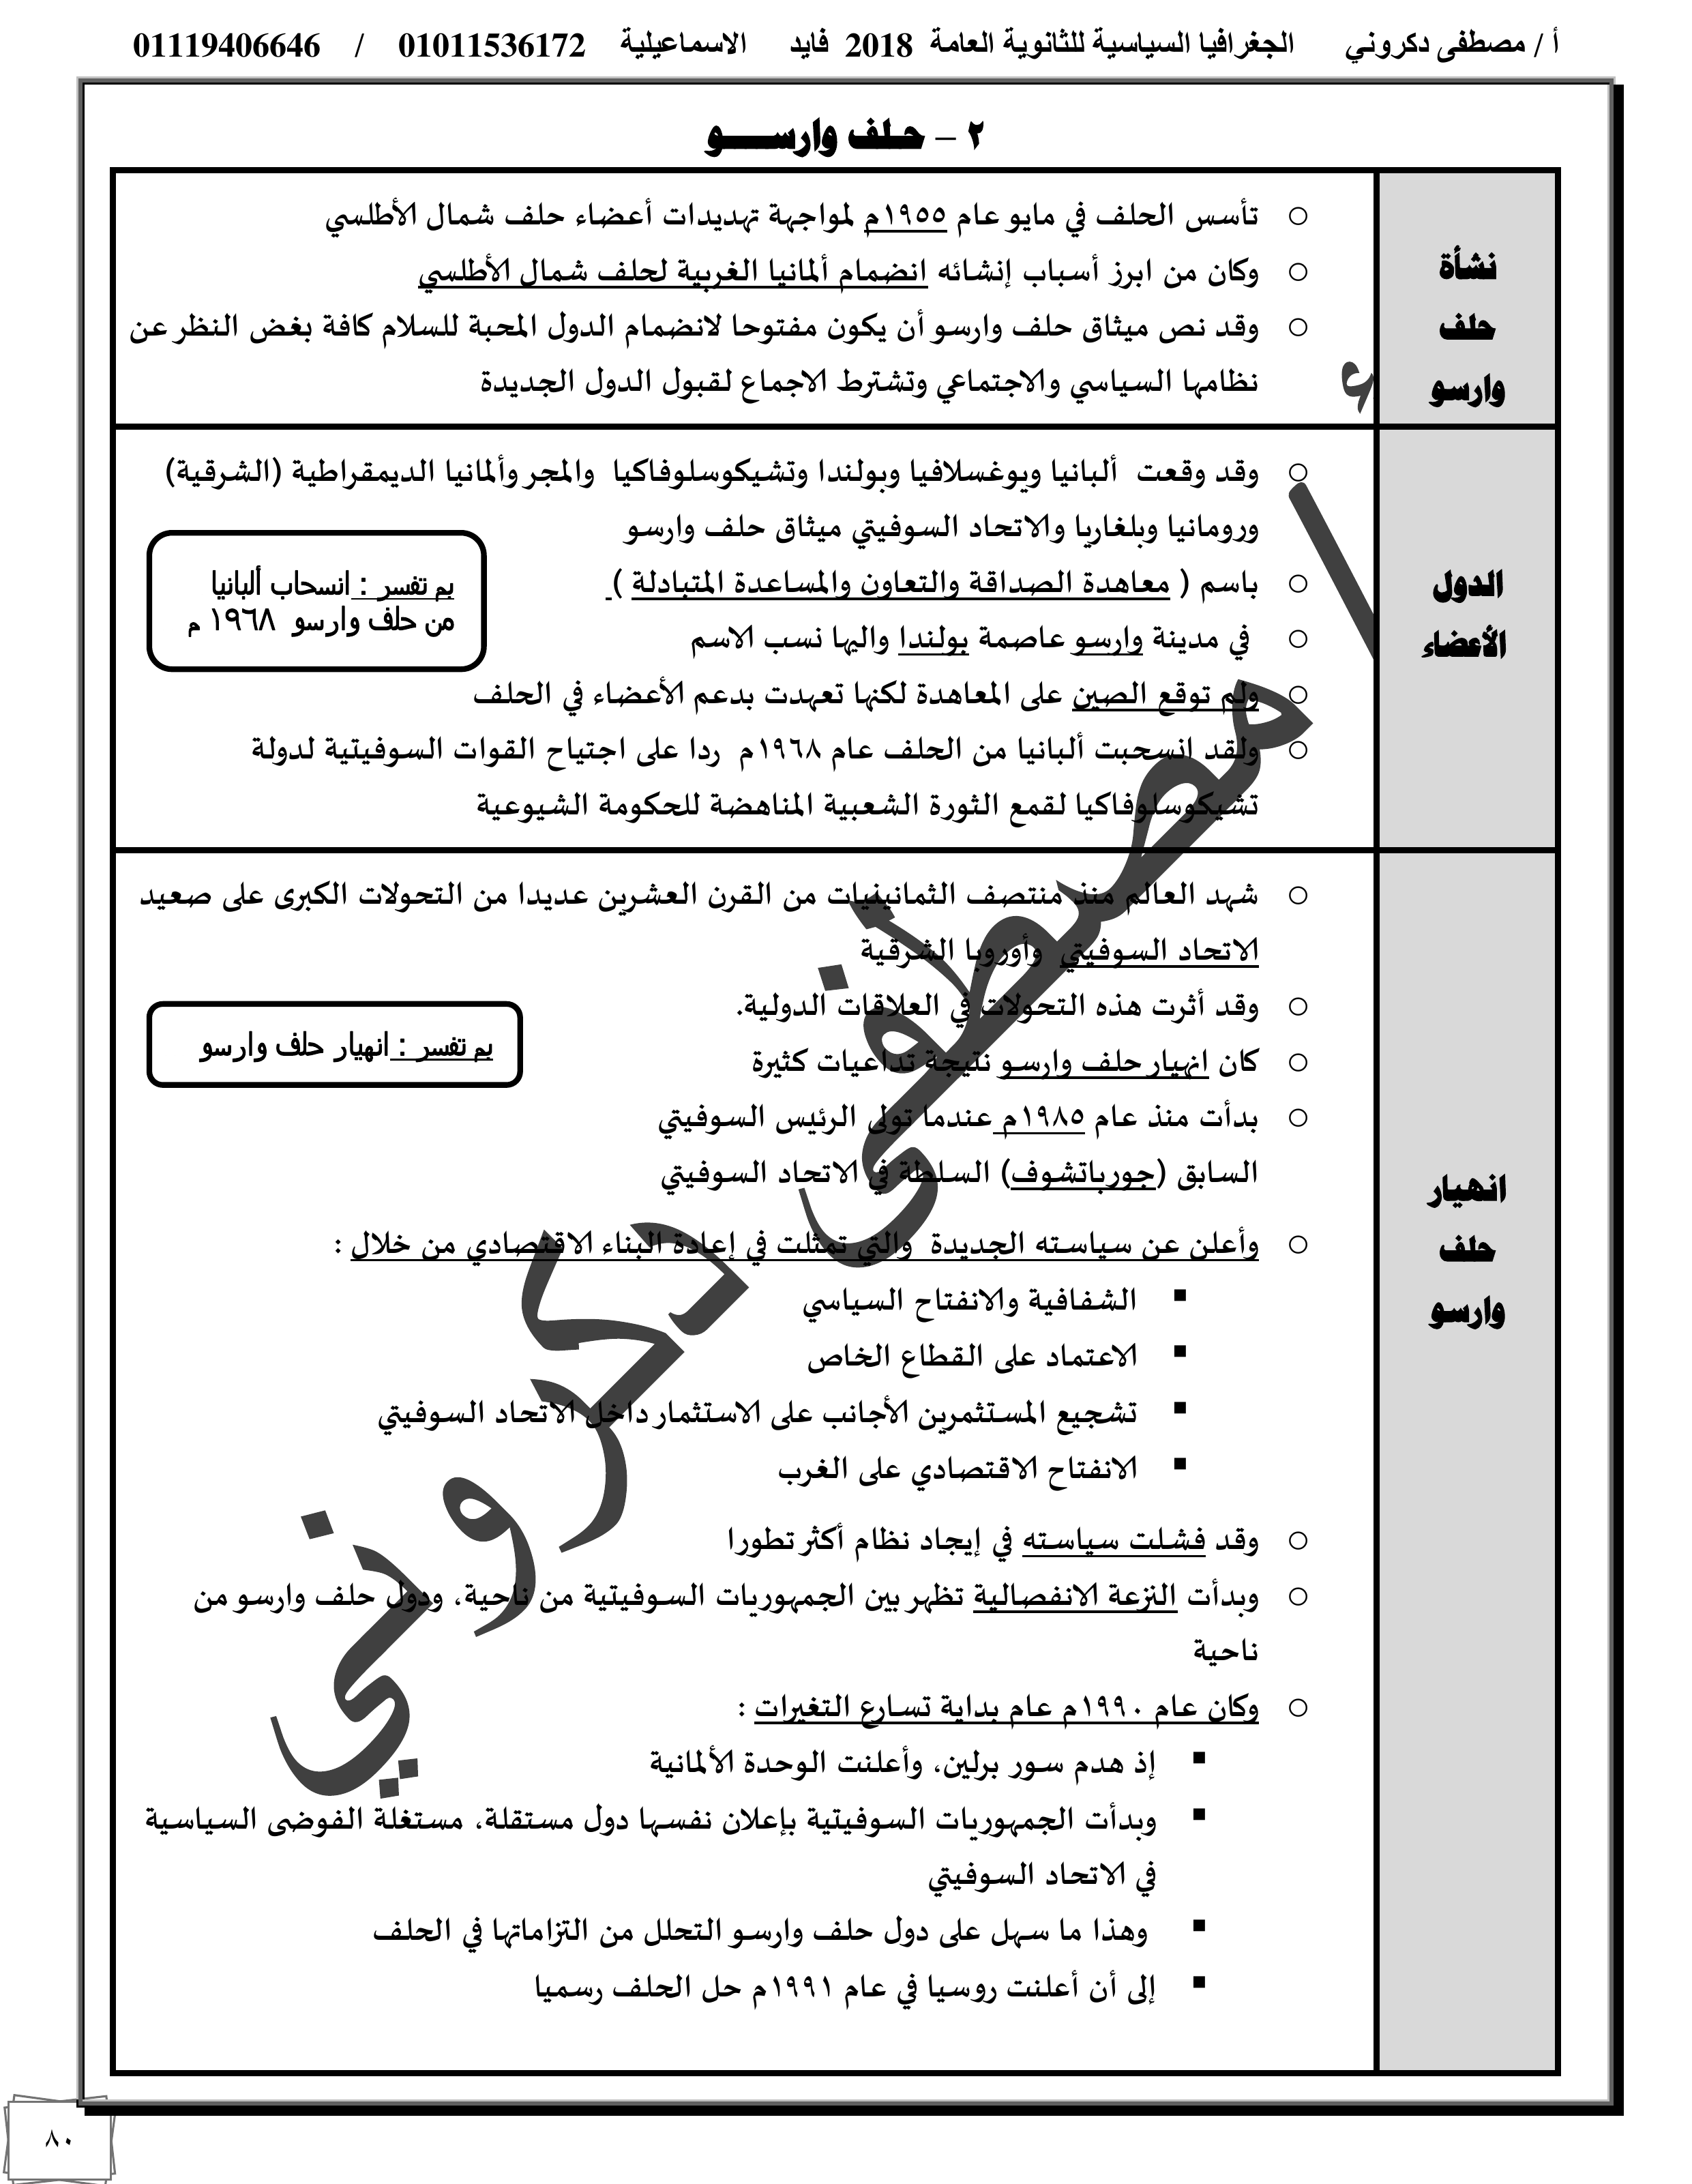 أ / مصطفى دكروني الجغرافيا السياسية للثانوية العامة 2018 فايد الاسماعيلية 01011536172 / 01119406646
٢ – حلف وارسو
نشأة
حلف
وارسو
تأسس الحلف في مايو عام ١٩٥٥م لمواجهة تهديدات أعضاء حلف شمال الأطلسي
وكان من ابرز أسباب إنشائه انضمام ألمانيا الغربية لحلف شمال الأطلسي
وقد نص ميثاق حلف وارسو أن يكون مفتوحا لانضمام الدول المحبة للسلام كافة بغض النظر عن
نظامها السياسي والاجتماعي وتشترط الاجماع لقبول الدول الجديدة
الدول
الأعضاء
وقد وقعت ألبانيا ويوغسلافيا وبولندا وتشيكوسلوفاكيا والمجر وألمانيا الديمقراطية (الشرقية)
ورومانيا وبلغاريا والاتحاد السوفيتي ميثاق حلف وارسو
باسم ( معاهدة الصداقة والتعاون والمساعدة المتبادلة )
في مدينة وارسو عاصمة بولندا واليها نسب الاسم
ولم توقع الصين على المعاهدة لكنها تعهدت بدعم الأعضاء في الحلف
ولقد انسحبت ألبانيا من الحلف عام ١٩٦٨م ردا على اجتياح القوات السوفيتية لدولة
تشيكوسلوفاكيا لقمع الثورة الشعبية المناهضة للحكومة الشيوعية
بم تفسر : انسحاب ألبانيا
من حلف وارسو ١٩٦٨ م
انهيار
حلف
وارسو
شهد العالم منذ منتصف الثمانينيات من القرن العشرين عديدا من التحولات الكبرى على صعيد
الاتحاد السوفيتي وأوروبا الشرقية
وقد أثرت هذه التحولات في العلاقات الدولية.
كان انهيار حلف وارسو نتيجة تداعيات كثيرة
بدأت منذ عام ١٩٨٥م عندما تولى الرئيس السوفيتي
السابق (جورباتشوف) السلطة في الاتحاد السوفيتي
بم تفسر : انهيار حلف وارسو
وأعلن عن سياسته الجديدة والتي تمثلت في إعادة البناء الاقتصادي من خلال :
الشفافية والانفتاح السياسي
الاعتماد على القطاع الخاص
تشجيع المستثمرين الأجانب على الاستثمار داخل الاتحاد السوفيتي
الانفتاح الاقتصادي على الغرب
وقد فشلت سياسته في إيجاد نظام أكثر تطورا
وبدأت النزعة الانفصالية تظهر بين الجمهوريات السوفيتية من ناحية، ودول حلف وارسو من
ناحية
وكان عام ١٩٩٠م عام بداية تسارع التغيرات :
إذ هدم سور برلين، وأعلنت الوحدة الألمانية
وبدأت الجمهوريات السوفيتية بإعلان نفسها دول مستقلة، مستغلة الفوضى السياسية
في الاتحاد السوفيتي
وهذا ما سهل على دول حلف وارسو التحلل من التزاماتها في الحلف
إلى أن أعلنت روسيا في عام ١٩٩١م حل الحلف رسميا
أ / مصطفى دكروني
٨٠